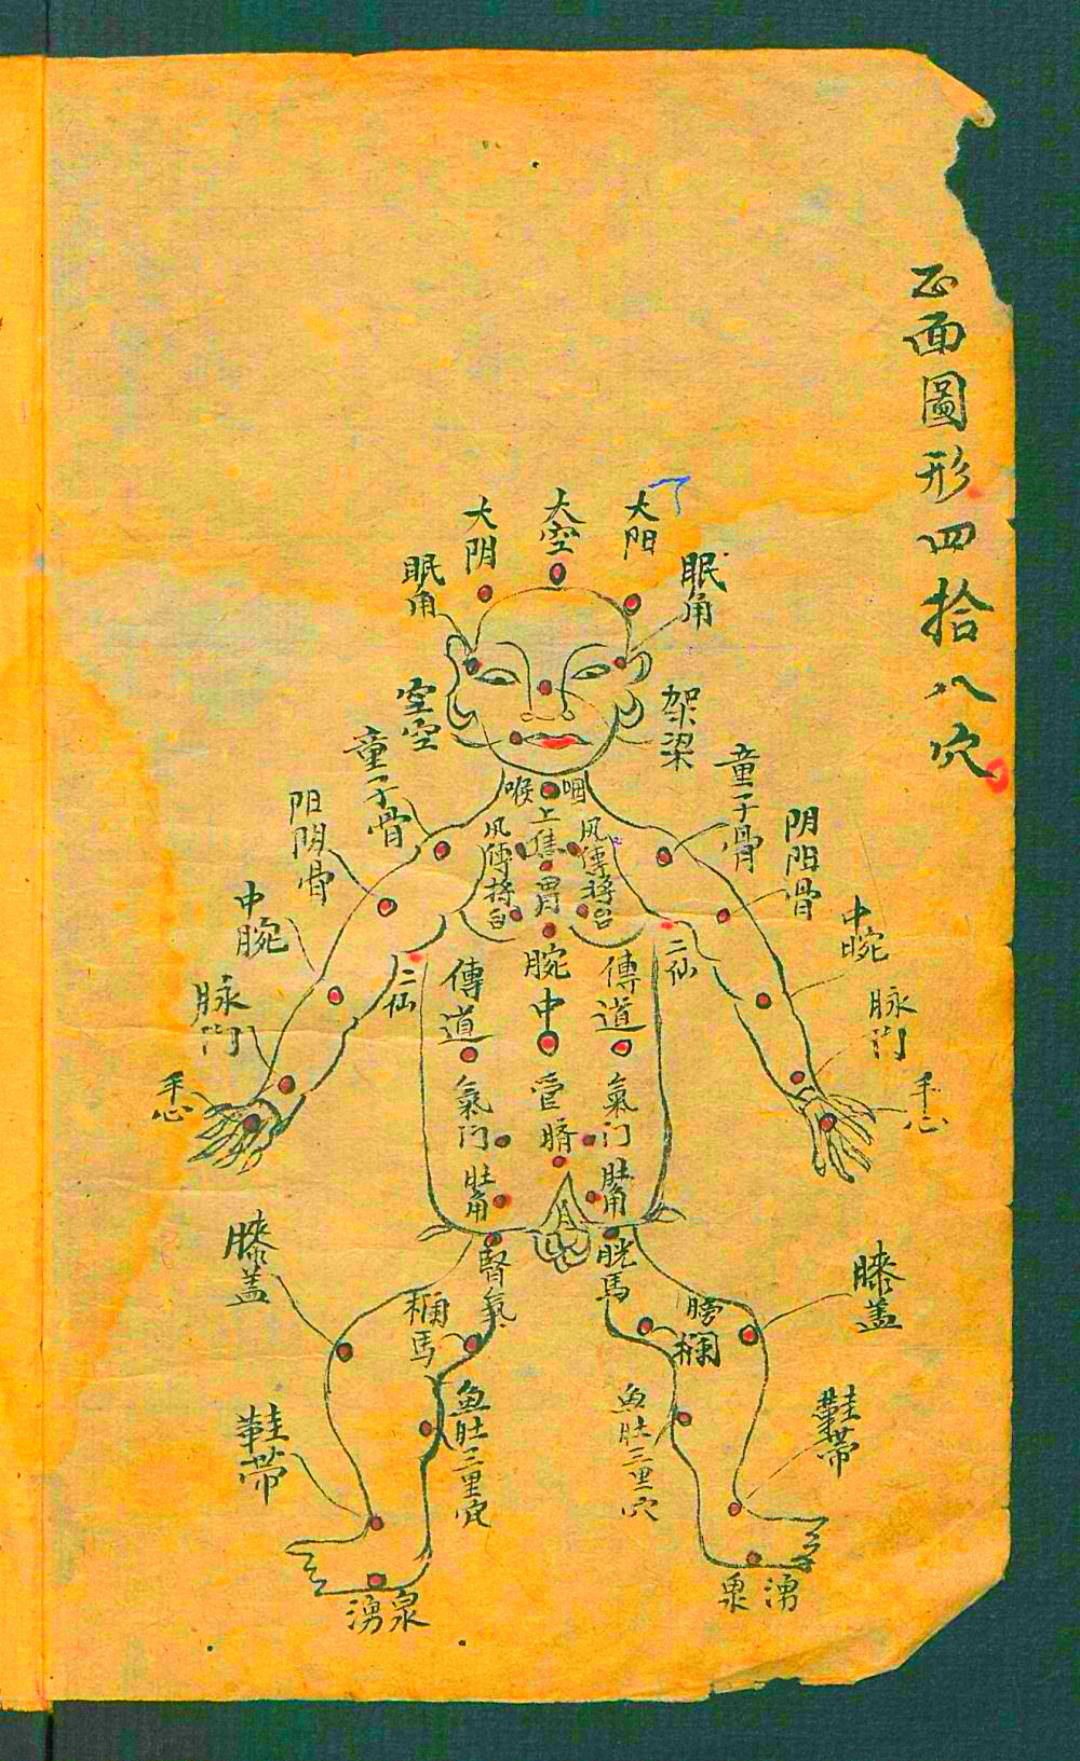 正面圖形四拾八穴
大阳
大空
大阴
眠角
眠角
架梁
空空
童子骨
童子骨
阴阳骨
阳阴骨
中腕
中腕
脉门
脉门
手心
手心
咽
喉
上焦
胃
腕
中
管
脐
风傳
将台
风傳
将台
二仙
二仙
傳道
傳道
氣门
氣门
肚角
肚角
腎氣
胱馬
膀
欄
欄馬
膝盖
膝盖
魚肚三里穴
魚肚三里穴
鞋带
鞋带
湧泉
湧泉